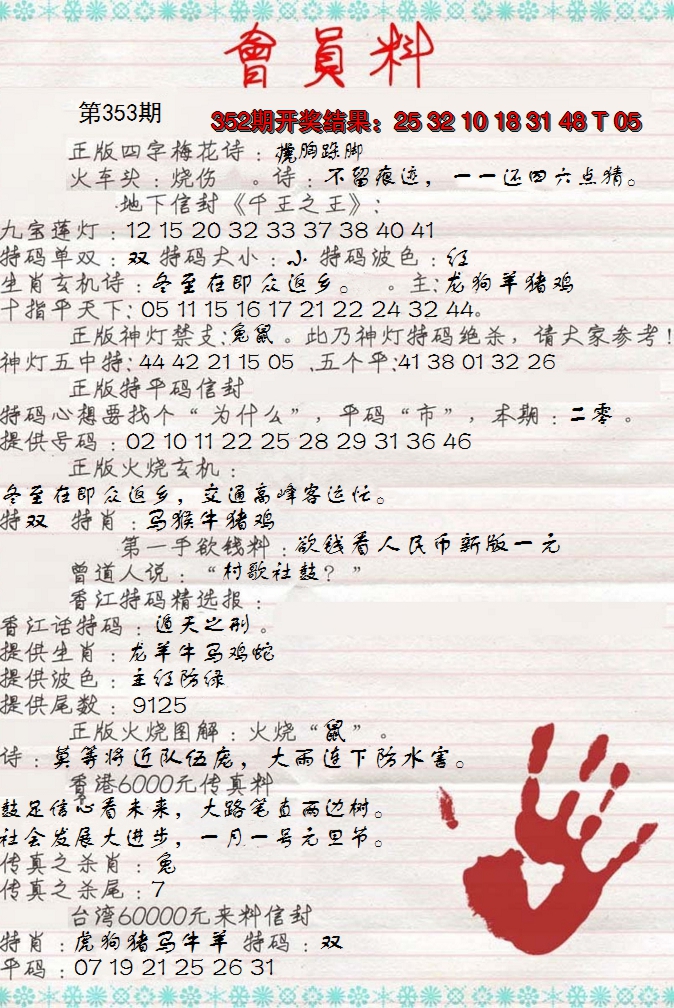 會員料
第353期
352期开奖结果：25 32 10 18 31 48 T 05
正版四字梅花诗：捶胸跺脚
火车头：烧伤 。诗：不留痕迹，一一还四六点猜。
地下信封《千王之王》：
九宝莲灯：12 15 20 32 33 37 38 40 41
特码单双：双 特码大小：小 特码波色：红
生肖玄机诗：冬至在即众返乡。 。主：龙狗羊猪鸡
十指平天下：05 11 15 16 17 21 22 24 32 44。
正版神灯禁支：兔鼠。此乃神灯特码绝杀，请大家参考！
神灯五中特：44 42 21 15 05 .五个平：41 38 01 32 26
正版特平码信封
特码心想要找个“为什么”，平码“市”，本期：二零。
提供号码：02 10 11 22 25 28 29 31 36 46
正版火烧玄机：
冬至在即众返乡，交通高峰客运忙。
特双 特肖：马猴牛猪鸡
第一手欲钱料：欲钱看人民币新版一元
曾道人说：“村歌社鼓？”
香江特码精选报：
香江话特码：遁天之刑。
提供生肖：龙羊牛马鸡蛇
提供波色：主红防绿
提供尾数：9125
正版火烧图解：火烧“鼠”。
诗：莫等将近队伍庞，大雨连下防水害。
香港6000元传真料
鼓足信心看未来，大路笔直两边树。
社会发展大进步，一月一号元旦节。
传真之杀肖：兔
传真之杀尾：7
台湾60000元来料信封
特肖：虎狗猪马牛羊 特码：双
平码：07 19 21 25 26 31